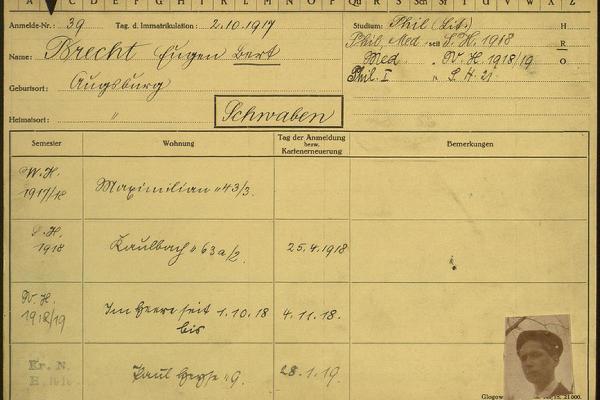 A C D E F G H I K L M N O P Qu R S Sch St T U V W X Y Z
Anmelde-Nr.: 39 Tag. d. Immatrikulation: 2.10.1917 Studium: Phil (Lit.) H
Phil, Med seit S.H. 1918 R
Name: Brecht Eugen Bert Med " W.H. 1918/19 O
Phil. I " S.H. 21
Geburtsort: Augsburg
Heimatsort: " Schwaben
Semester Wohnung Tag der Anmeldung bezw. Kartenerneuerung Bemerkungen
W.H. 1917/18 Maximilian " 43/3.
S.H. 1918 Kaulbach " 63a/2. 25.4.1918
W.H. 1918/19 Im Heere seit 1.10.18 4.11.18.
bis
Kr. N. Paul Heyse " 9. 28.1.19.